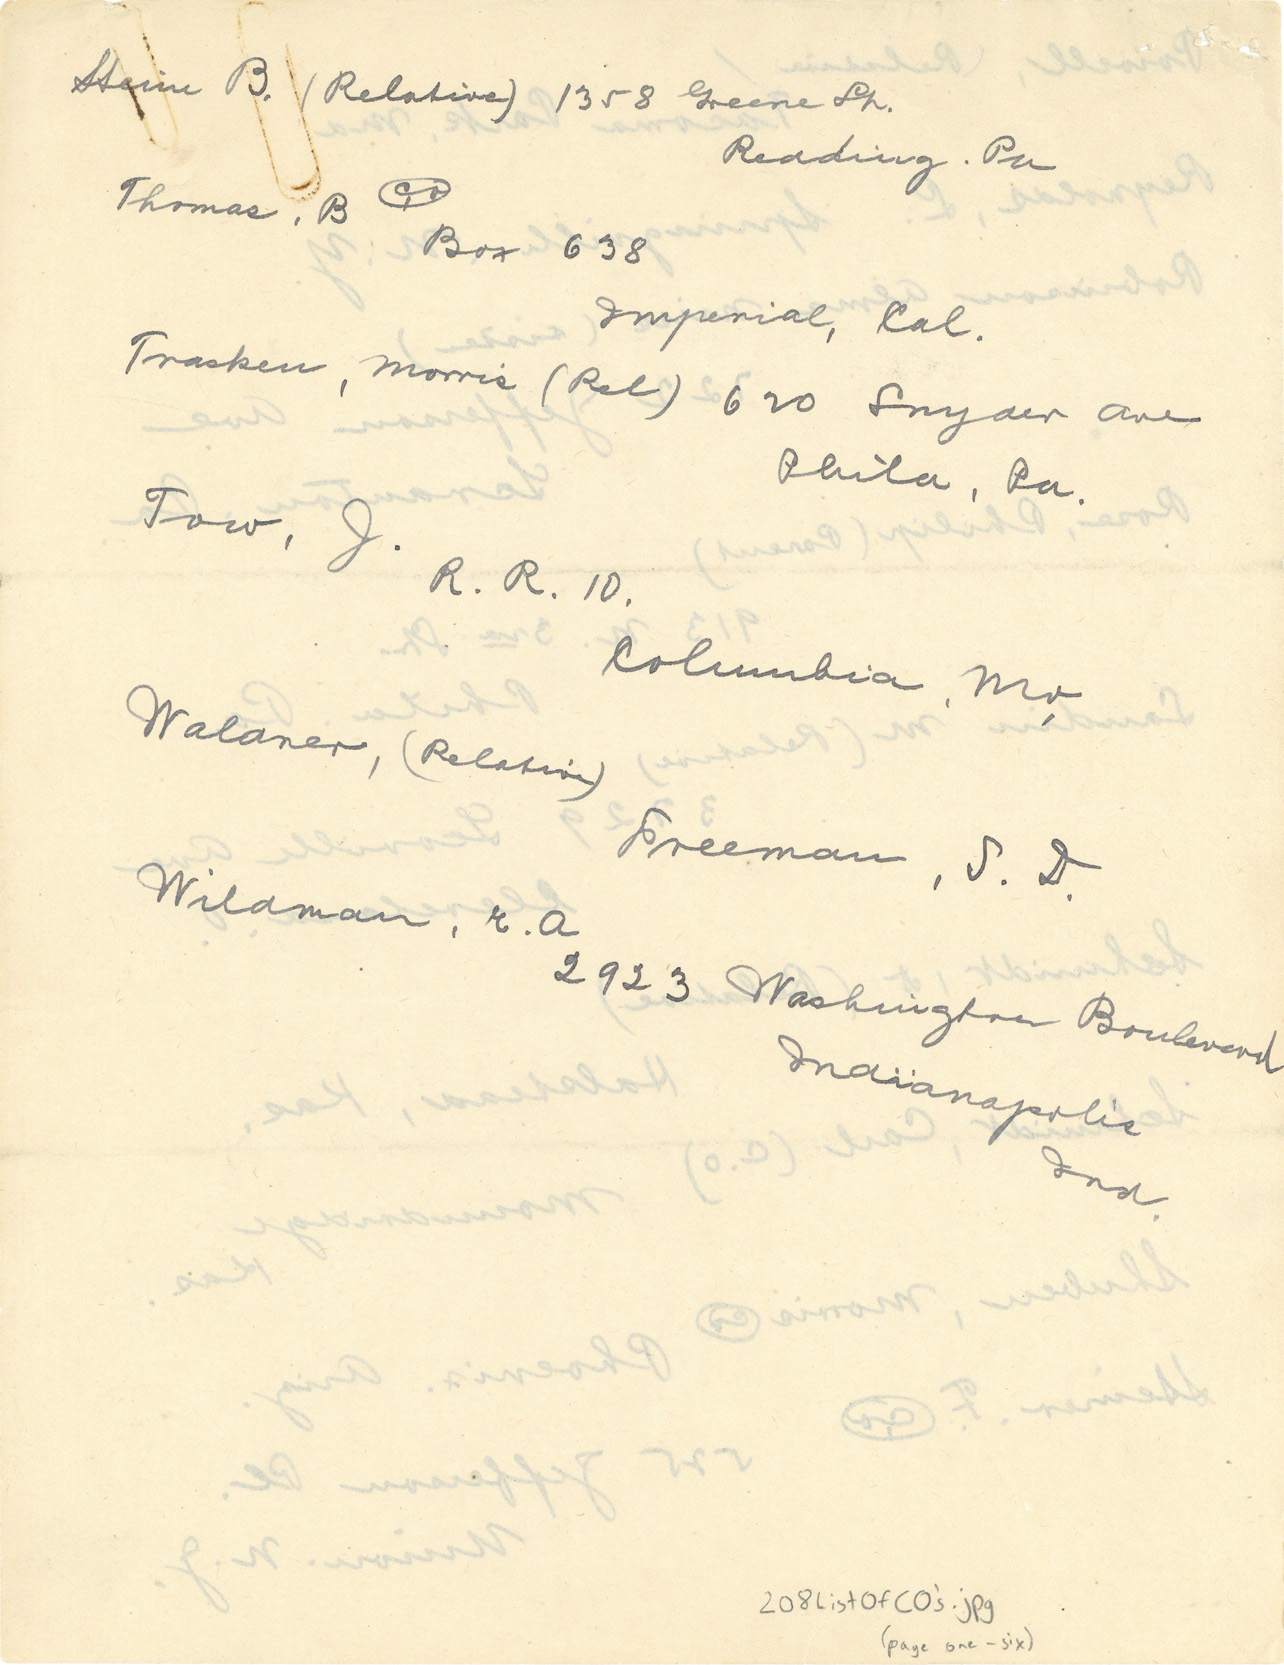 Steine B. (Relative) 1358 Greene St.
Reading. Pa
Thomas, B CO
Box 638
Imperial, Cal.
Trasken, Morris (Rel) 620 Snyder Ave
Phila, Pa.
Tow, J.
R. R. 10.
Columbia, Mo,
Waldner, (Relative)
Freeman, S. D.
Wildman, r. a
2923 Washington Boulevard
Indianapolis
Ind.
208ListOfCO's.jpg
(page one - six)